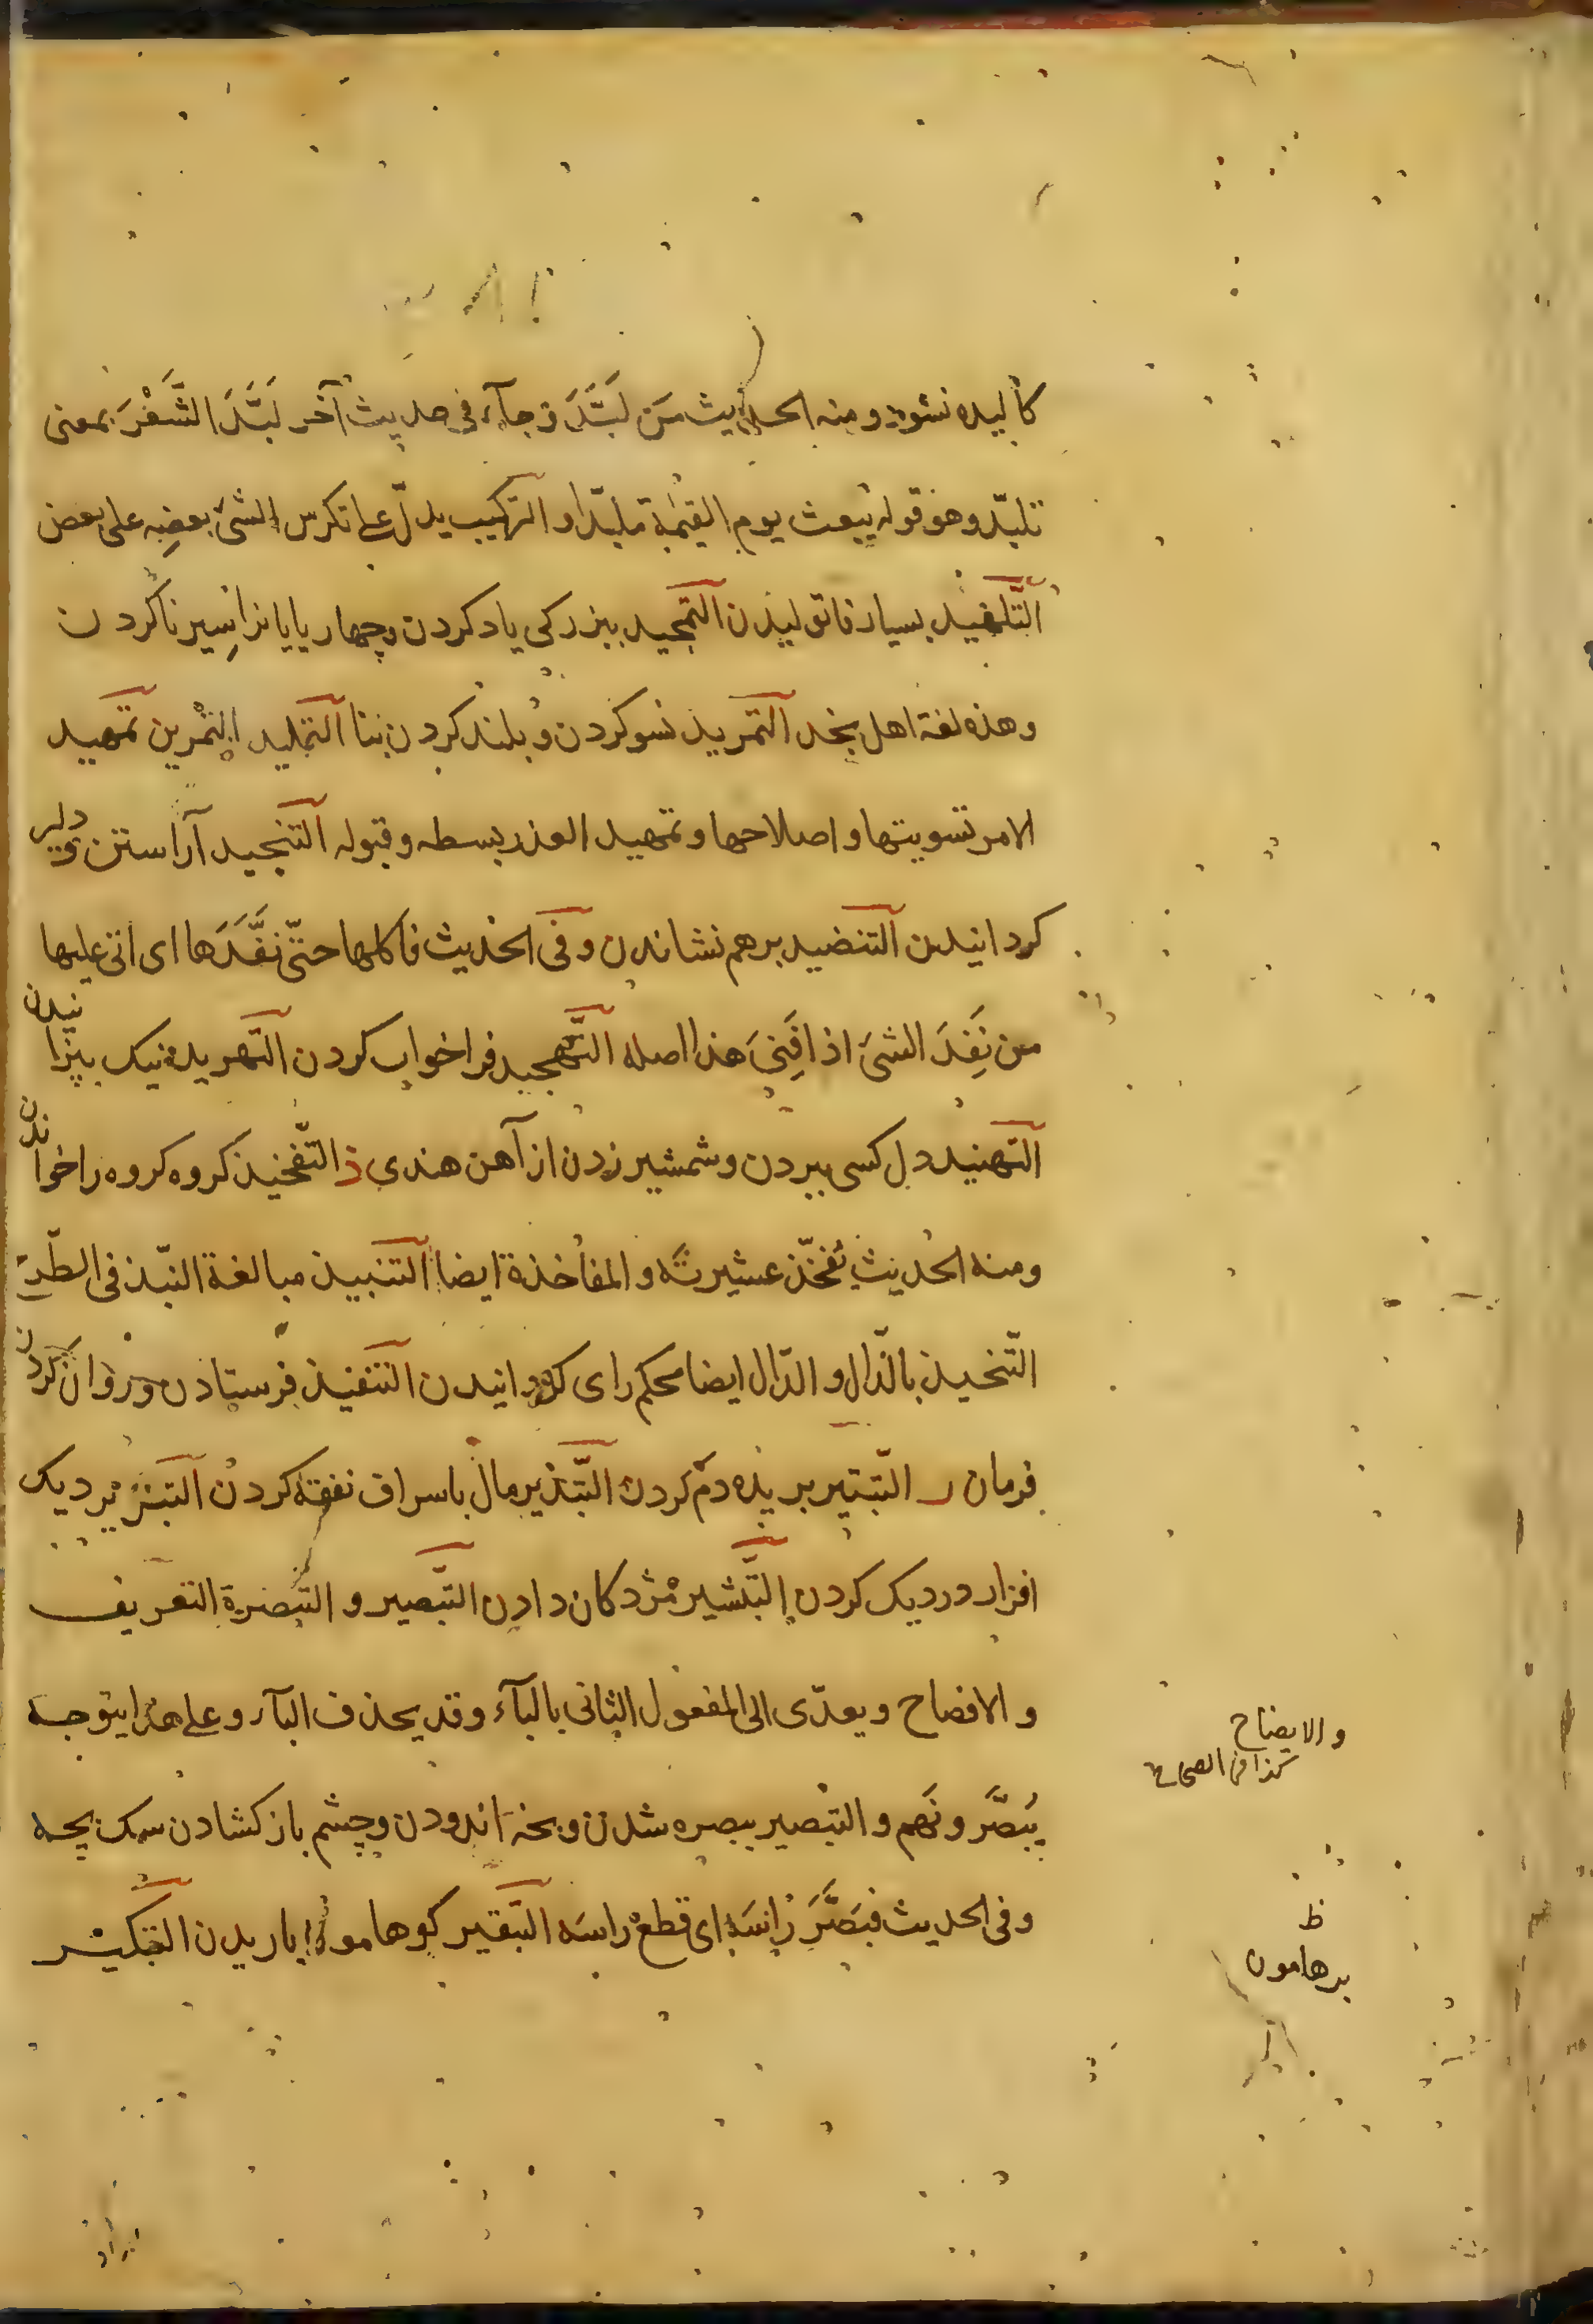 كاليده نشود ومنه الحديث مَن لَبَّدَ و جآء فى حديث آخر لَبَّدَ الشَّعْرَ بمعنى
تلبّد وهو قوله يُبعث يوم القيٰمة ملبّدا و التركيب يدلّ على تكرس الشئ بعضِه على بعض
التَّلهيد بسيار فاتوليدن التمجيد ببزركى ياد كردن وچهار پايانرا سير ناكردن
وهذه لغة اهل نجد التمريد نسو كردن و بلند كردن بنا التمليد التمْرين تمهيد
الامر تسويتها و اصلاحها و تمهيد العذر بسطه وقبوله التنجيد آراستن و دلير
كردانيدن التنضيد برهم نشاندن وفى الحديث فاكلها حتّى نَفَّدَها اى اتى عليها
من نَفِدَ الشئَ اذا فَنِىَ هذا اصله التَّهجيد فرا خواب كردن التهريد نيك بپزانيدن
التهنيد دل كسى ببردن وشمشير زدن از آهن هندى ذ التّفخيذ كروه كروه را خواندن
ومنه الحديث يُفخّذ عشيرتَه و المفاخذة ايضا التنبيذ مبالغة النّبذ فى الطّرح
التّنجيذ بالذال و الدّال ايضا محكم راى كردانيدن التنفيذ فرستادن و روان كردن
فرمان ر التّبتير بريذه دم كردن التّبذير مال باسراف نفقه كردن التبزير ديك
افزار در ديك كردن التّبشير مُژدكان دادن التّبصير و التّبصرة التعريف
و الافصاح و يعدّى الى المفعول الثانى بالبآء وقد يحذف البآء و على هذا يتوجه
يُبَصَّر و نَهم و التبصير ببصره شدن و بخرَ اندودن و چشم باز كشادن سك بچه
وفى الحديث فبَصَّرَ رَاسَه اى قطع راسَه التّبقير كوها مون پاريدن التّبكير
و الايضاح
كذا فى الصحاح
ظ
برهامون